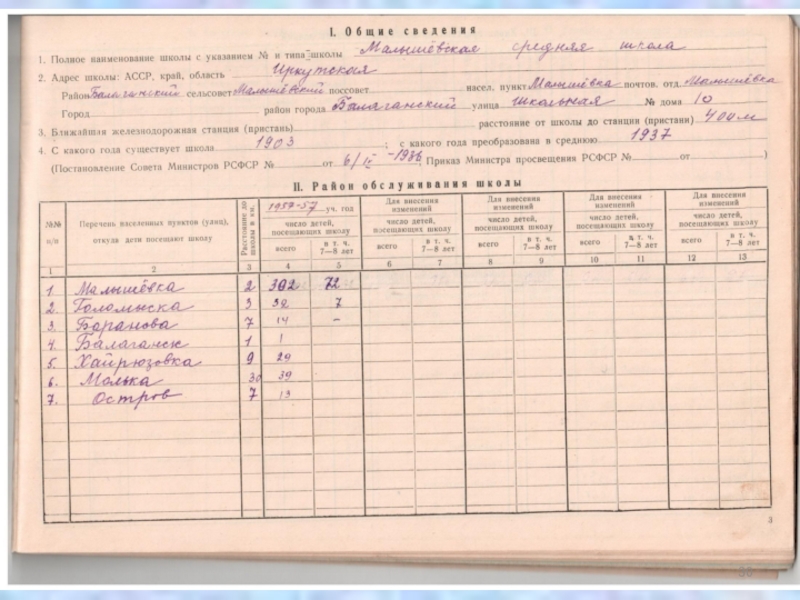 I. Общие сведения
1. Полное наименование школы с указанием № и типа школы Малышёвская средняя школа
2. Адрес школы: АССР, край, область Иркутская
Район Балаганский сельсовет Малышёвский поссовет насел. пункт Малышёвка почтов. отд. Малышёвка
Город район города Балаганский улица школьная № дома 10
3. Ближайшая железнодорожная станция (пристань) расстояние от школы до станции (пристани) 400 м
4. С какого года существует школа 1903 ; с какого года преобразована в среднюю 1937
(Постановление Совета Министров РСФСР № от 6/IX -1936, Приказ Министра просвещения РСФСР № от )
II. Район обслуживания школы
№№ п/п Перечень населенных пунктов (улиц), откуда дети посещают школу Расстояние до школы в км. 1957-57 уч. год Для внесения изменений Для внесения изменений Для внесения изменений Для внесения изменений
число детей, посещающих школу число детей, посещающих школу число детей, посещающих школу число детей, посещающих школу число детей, посещающих школу
всего в т. ч. 7—8 лет всего в т. ч. 7—8 лет всего в т. ч. 7—8 лет всего в т. ч. 7—8 лет всего в т. ч. 7—8 лет
1 2 3 4 5 6 7 8 9 10 11 12 13
1. Малышёвка 2 302 72
2. 3 32 7
3. Баранова 7 14 –
4. Балаганск 1 1
5. Хайрюзовка 9 29
6. Молька 30 39
7. Остров 7 13
3